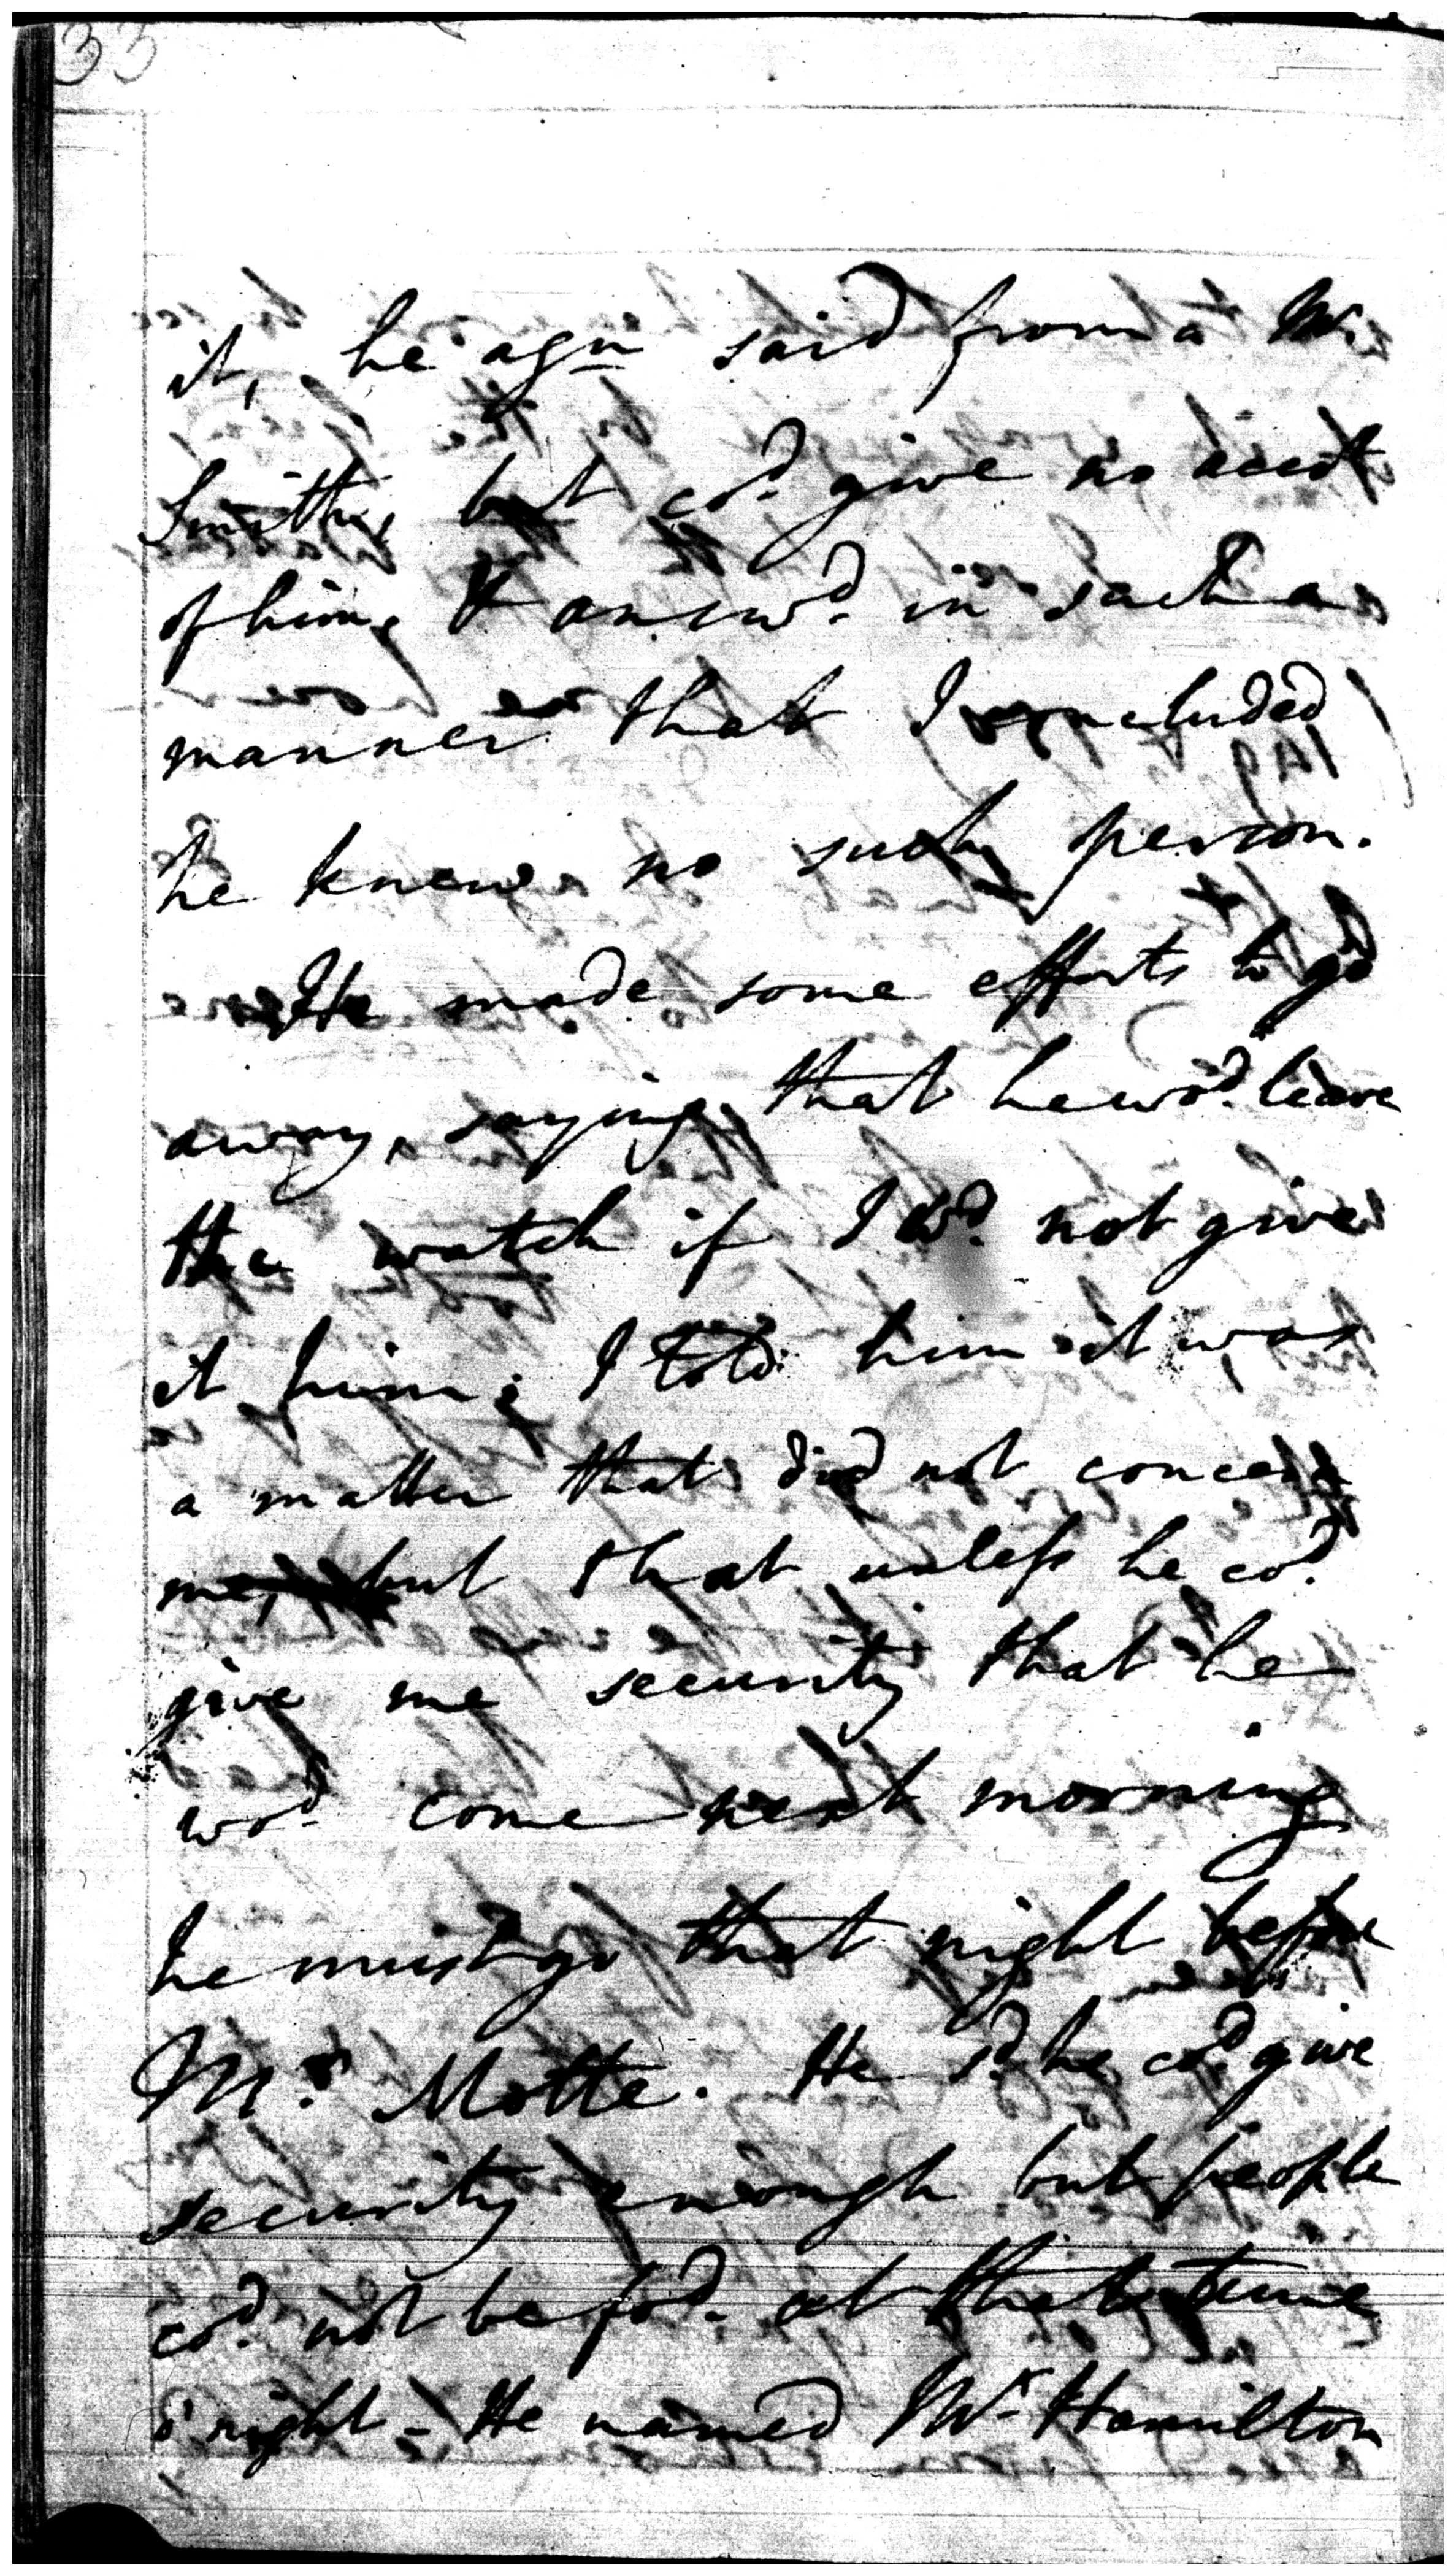 33
it, he agn said from a Mr.
Smith, but cod. give no acct
of him, & answd. in such a
manner that I concluded
he knew no such person.
He made some efforts to go
away, saying that he wod. leave
the watch if I wd. not give
it him; I told him it was
a matter that did not concern
me, but that unless he cod.
give me security that he
wod. come next morning
he must go that night before
Mr. Motte. He sd. he cod. give
security enough but people
cod. not be fod. at that time
o' night - He named Mr. Hamilton